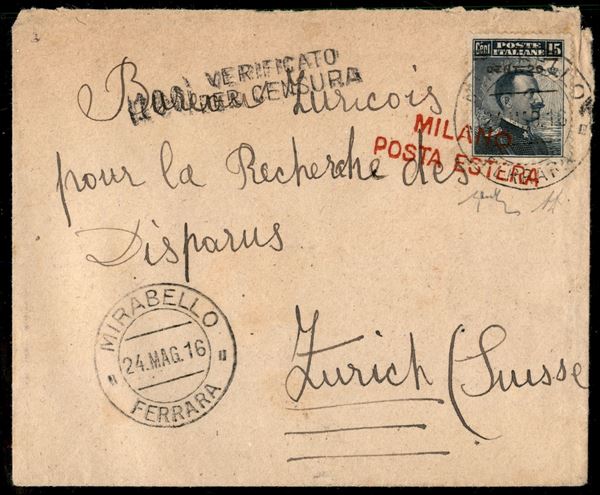 VERIFICATO
PER CENSURA
Bureau Zuricois
pour la Recherche des
Disparus
Zurich (Suisse
Cent. 15
POSTE
ITALIANE
MILANO
POSTA ESTERA
MIRABELLO
24.MAG.16
FERRARA